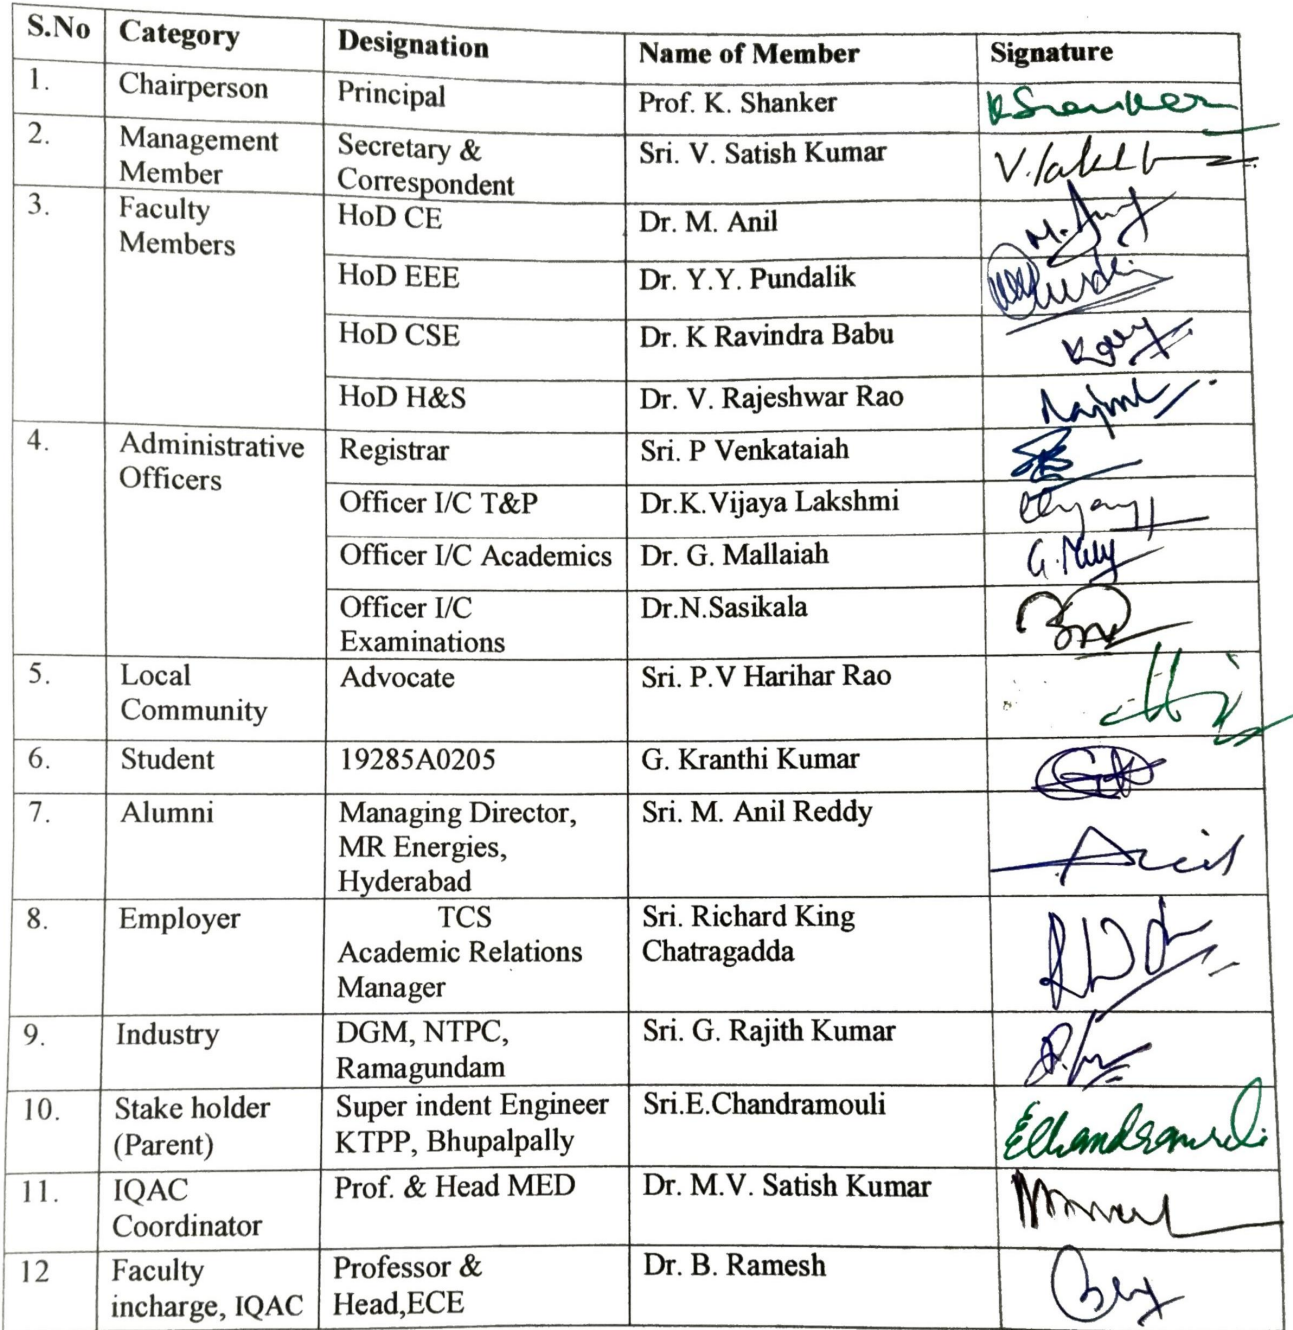 S.No Category Designation Name of Member Signature
1. Chairperson Principal Prof. K. Shanker KShanker
2. Management Member Secretary & Correspondent Sri. V. Satish Kumar
3. Faculty Members HoD CE Dr. M. Anil
HoD EEE Dr. Y.Y. Pundalik
HoD CSE Dr. K Ravindra Babu
HoD H&S Dr. V. Rajeshwar Rao
4. Administrative Officers Registrar Sri. P Venkataiah
Officer I/C T&P Dr.K.Vijaya Lakshmi
Officer I/C Academics Dr. G. Mallaiah
Officer I/C Examinations Dr.N.Sasikala
5. Local Community Advocate Sri. P.V Harihar Rao
6. Student 19285A0205 G. Kranthi Kumar
7. Alumni Managing Director, MR Energies, Hyderabad Sri. M. Anil Reddy
8. Employer TCS Academic Relations Manager Sri. Richard King Chatragadda
9. Industry DGM, NTPC, Ramagundam Sri. G. Rajith Kumar
10. Stake holder (Parent) Super indent Engineer KTPP, Bhupalpally Sri.E.Chandramouli EChandramouli
11. IQAC Coordinator Prof. & Head MED Dr. M.V. Satish Kumar
12 Faculty incharge, IQAC Professor & Head,ECE Dr. B. Ramesh